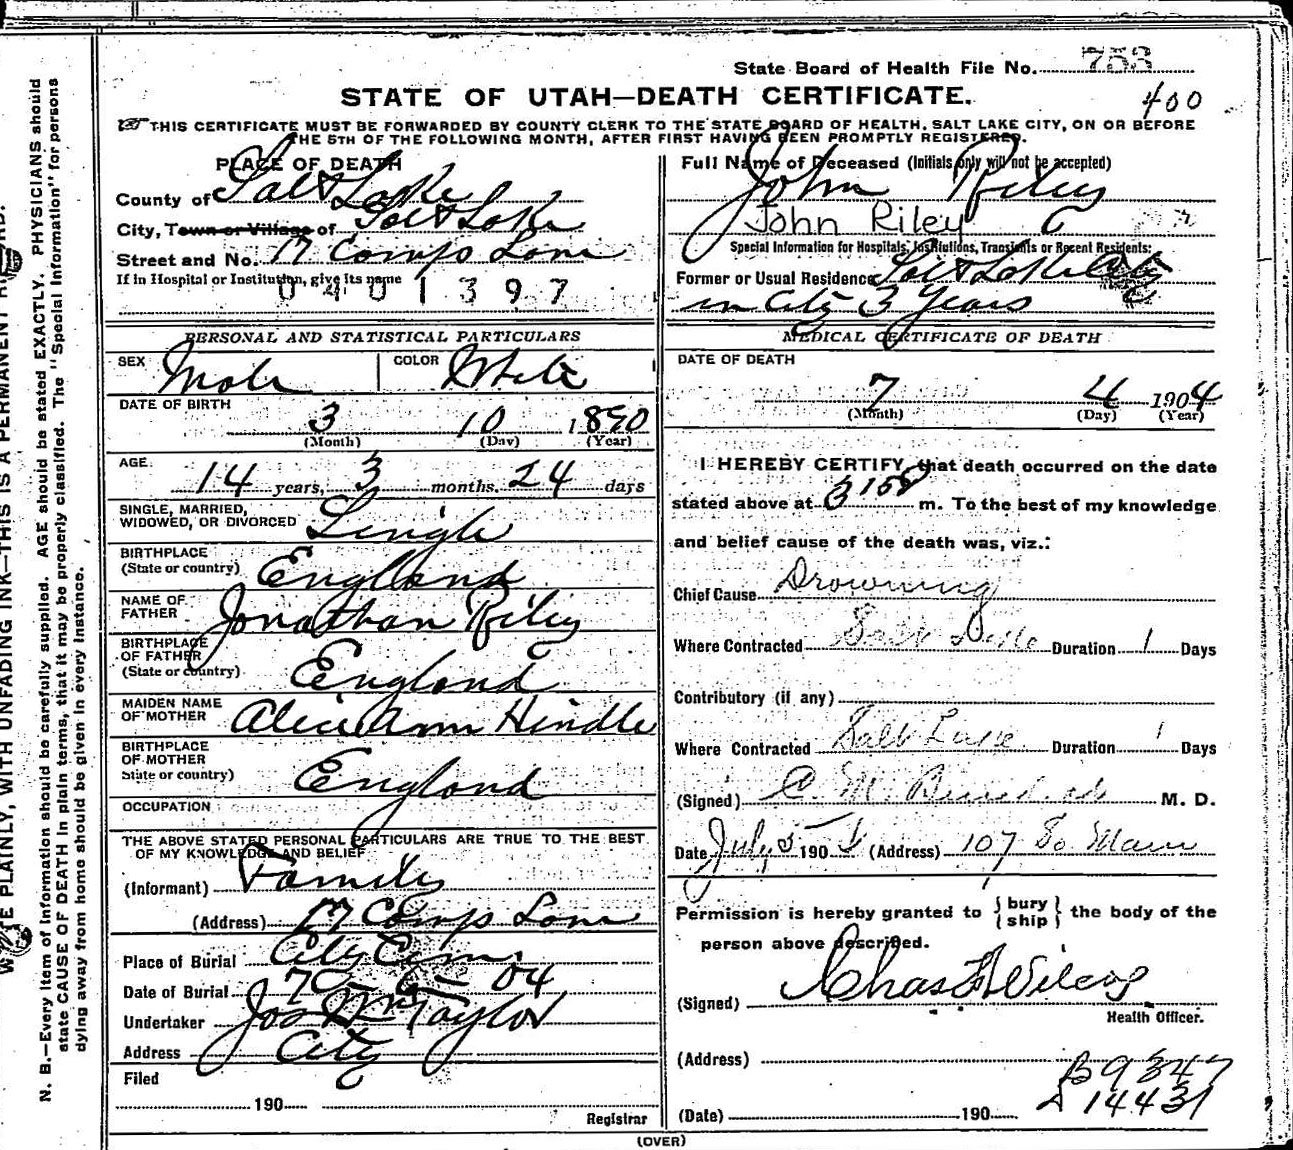 State Board of Health File No. 753
STATE OF UTAH—DEATH CERTIFICATE.
400
THIS CERTIFICATE MUST BE FORWARDED BY COUNTY CLERK TO THE STATE BOARD OF HEALTH, SALT LAKE CITY, ON OR BEFORE
THE 5TH OF THE FOLLOWING MONTH, AFTER FIRST HAVING BEEN PROMPTLY REGISTERED.
PLACE OF DEATH
County of Salt Lake
City, Town or Village of Salt Lake
Street and No. 17 Comps Lane
If in Hospital or Institution, give its name
0401397
Full Name of Deceased (Initials only will not be accepted)
John Riley
John Riley
Special Information for Hospitals, Institutions, Transients or Recent Residents:
Former or Usual Residence Salt Lake City
in City 3 Years
PERSONAL AND STATISTICAL PARTICULARS
SEX Male COLOR White
DATE OF BIRTH
3 10 1890
(Month) (Day) (Year)
AGE
14 years, 3 months, 24 days
SINGLE, MARRIED,
WIDOWED, OR DIVORCED Single
BIRTHPLACE
(State or country) England
NAME OF
FATHER Jonathan Riley
BIRTHPLACE
OF FATHER
(State or country) England
MAIDEN NAME
OF MOTHER Alice Ann Hindle
BIRTHPLACE
OF MOTHER
State or country) England
OCCUPATION
THE ABOVE STATED PERSONAL PARTICULARS ARE TRUE TO THE BEST
OF MY KNOWLEDGE AND BELIEF
(Informant) Family
(Address) 17 Comps Lane
Place of Burial City Cem.
Date of Burial 7 6 04
Undertaker Jos Wm Taylor
Address City
Filed
190
Registrar
MEDICAL CERTIFICATE OF DEATH
DATE OF DEATH
7 4 1904
(Month) (Day) (Year)
I HEREBY CERTIFY, that death occurred on the date
stated above at 3 15 m. To the best of my knowledge
and belief cause of the death was, viz.:
Chief Cause Drowning
Where Contracted Salt Lake Duration 1 Days
Contributory (if any)
Where Contracted Salt Lake Duration 1 Days
(Signed) C. M. M. D.
Date July 5 190 (Address) 107 So Main
Permission is hereby granted to { bury ship } the body of the
person above described.
(Signed) Chas F Wilcox
Health Officer.
(Address)
B 9347
D 14431
(Date) 190
(OVER)
N. B.—Every item of information should be carefully supplied. AGE should be stated EXACTLY. PHYSICIANS should
state CAUSE OF DEATH in plain terms, that it may be properly classified. The "Special Information" for persons
dying away from home should be given in every instance.
PLAINLY, WITH UNFADING INK—THIS IS A PERMANENT